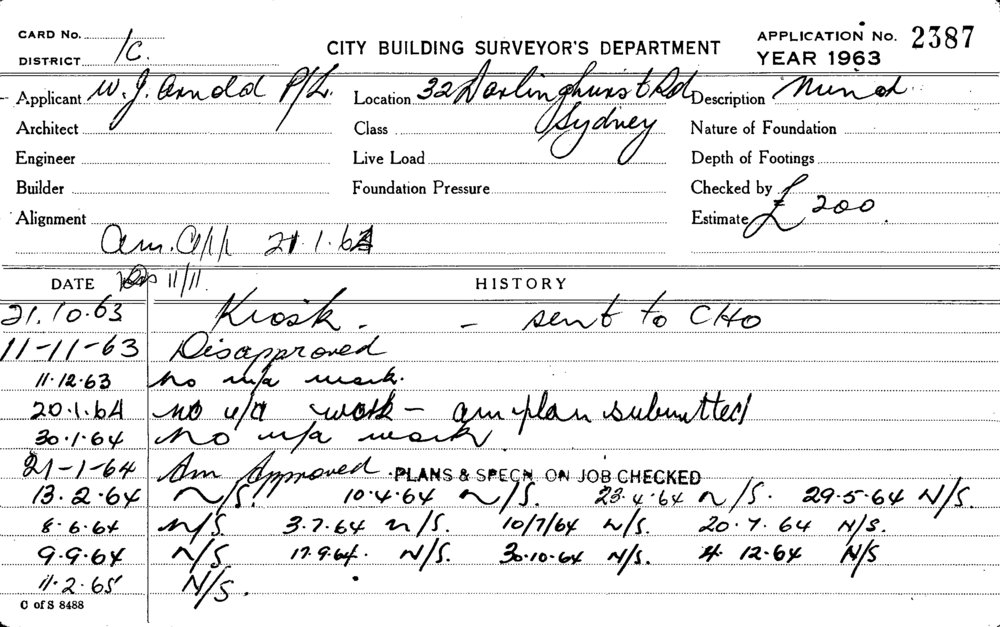 CARD No.
DISTRICT 1C.
CITY BUILDING SURVEYOR'S DEPARTMENT
APPLICATION No. 2387
YEAR 1963
Applicant W. J. Arnold P/L. Location 32 Darlinghurst Rd Description
Architect Class Sydney Nature of Foundation
Engineer Live Load Depth of Footings
Builder Foundation Pressure Checked by
Alignment Estimate £200.
Am. App 21.1.64
DATE 11/11. HISTORY
21.10.63 Kiosk. - sent to CHO
11-11-63 Disapproved
11.12.63 No u/a work.
20.1.64 no u/a work - am plan submitted
30.1.64 No u/a work
21-1-64 Am Approved PLANS & SPECN. ON JOB CHECKED
13.2.64 N/S. 10.4.64 N/S. 23.4.64 N/S. 29.5.64 N/S.
8.6.64 N/S. 3.7.64 N/S. 10/7/64 N/S. 20.7.64 N/S.
9.9.64 N/S 17.9.64. N/S. 30.10.64 N/S. 4.12.64 N/S
11.2.65 N/S.
C of S 8488